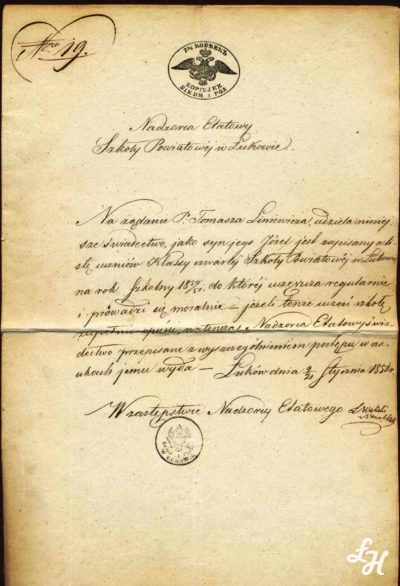 Nro 19.
7½ КОПѢЕКЪ
KOPIEJEK
SIEDM I PÓŁ
Nadzorca Etatowy
Szkoły Powiatowéj w Łukowie.
Na żądanie P. Tomasza Liniewicza, udziela niniej
sze świadectwo, jako syn jego Józef jest zapisany w li
stę uczniów Klassy czwartéj Szkoły Powiatowéj w Łukowie
na rok Szkolny do któréj uczęszcza regularnie
i prowadzi się moralnie – jeżeli tenże uczeń szkołę
zupełnie opuści, natenczas Nadzorca Etatowy świa
dectwo przepisane z wyszczególnieniem postępu w na
ukach jemu wyda – Łuków dnia Stycznia
W zastępstwie Nadzorcy Etatowego
W ŁUKOWIE
ŁH